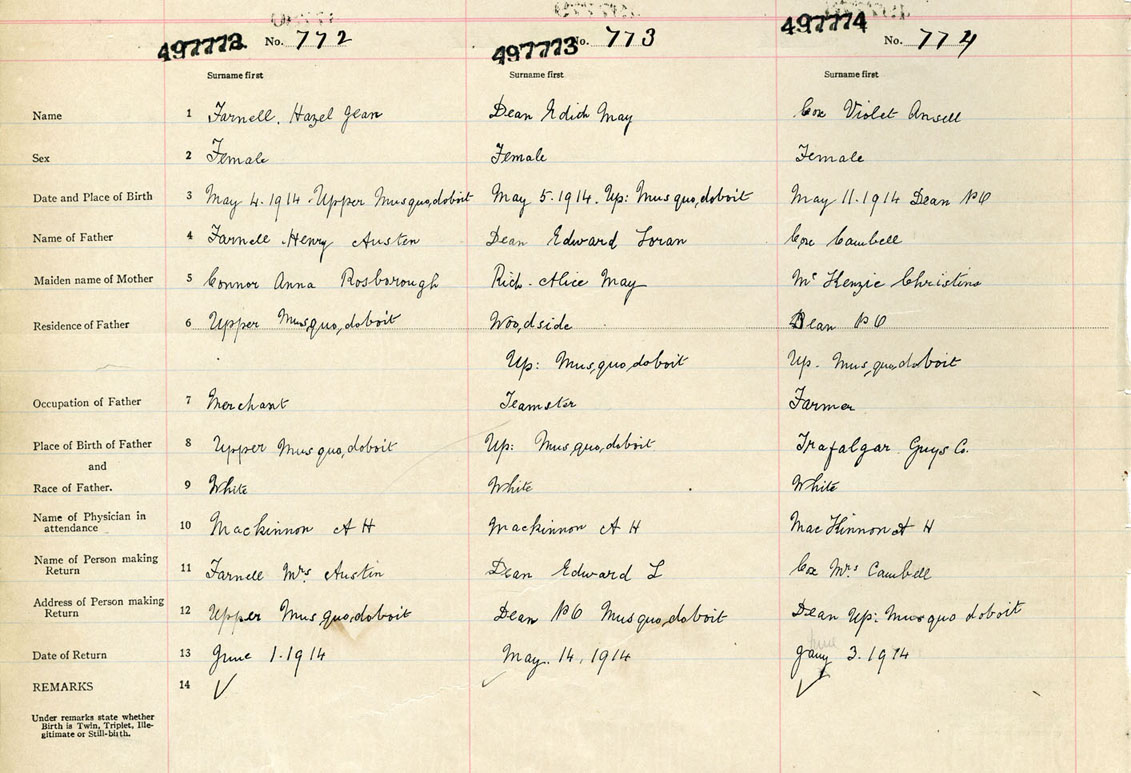 497772 No. 772 497773 No. 773 497774 No. 774
Surname first Surname first Surname first
Name 1 Farnell, Hazel Jean Dean Edith May Cox Violet Ansell
Sex 2 Female Female Female
Date and Place of Birth 3 May 4. 1914. Upper Musquodoboit May 5. 1914. Up: Musquodoboit May 11. 1914 Dean PO
Name of Father 4 Farnell Henry Austen Dean Edward Loran Cox Cambell
Maiden name of Mother 5 Connor Anna Rosborough Rich. Alice May Mc Kenzie Christina
Residence of Father 6 Upper Musquodoboit Woodside Dean PO
Up: Musquodoboit Up. Musquodoboit
Occupation of Father 7 Merchant Teamster Farmer
Place of Birth of Father 8 Upper Musquodoboit Up: Musquodoboit Trafalgar Guys Co.
and
Race of Father. 9 White White White
Name of Physician in
attendance 10 Mackinnon A H Mackinnon A H MacKinnon A H
Name of Person making
Return 11 Farnell Mrs Austin Dean Edward L Cox Mrs Cambell
Address of Person making
Return 12 Upper Musquodoboit Dean PO Musquodoboit Dean Up: Musquodoboit
Date of Return 13 June 1. 1914 May. 14, 1914 3. 1914
REMARKS 14
Under remarks state whether
Birth is Twin, Triplet, Ille-
gitimate or Still-birth.